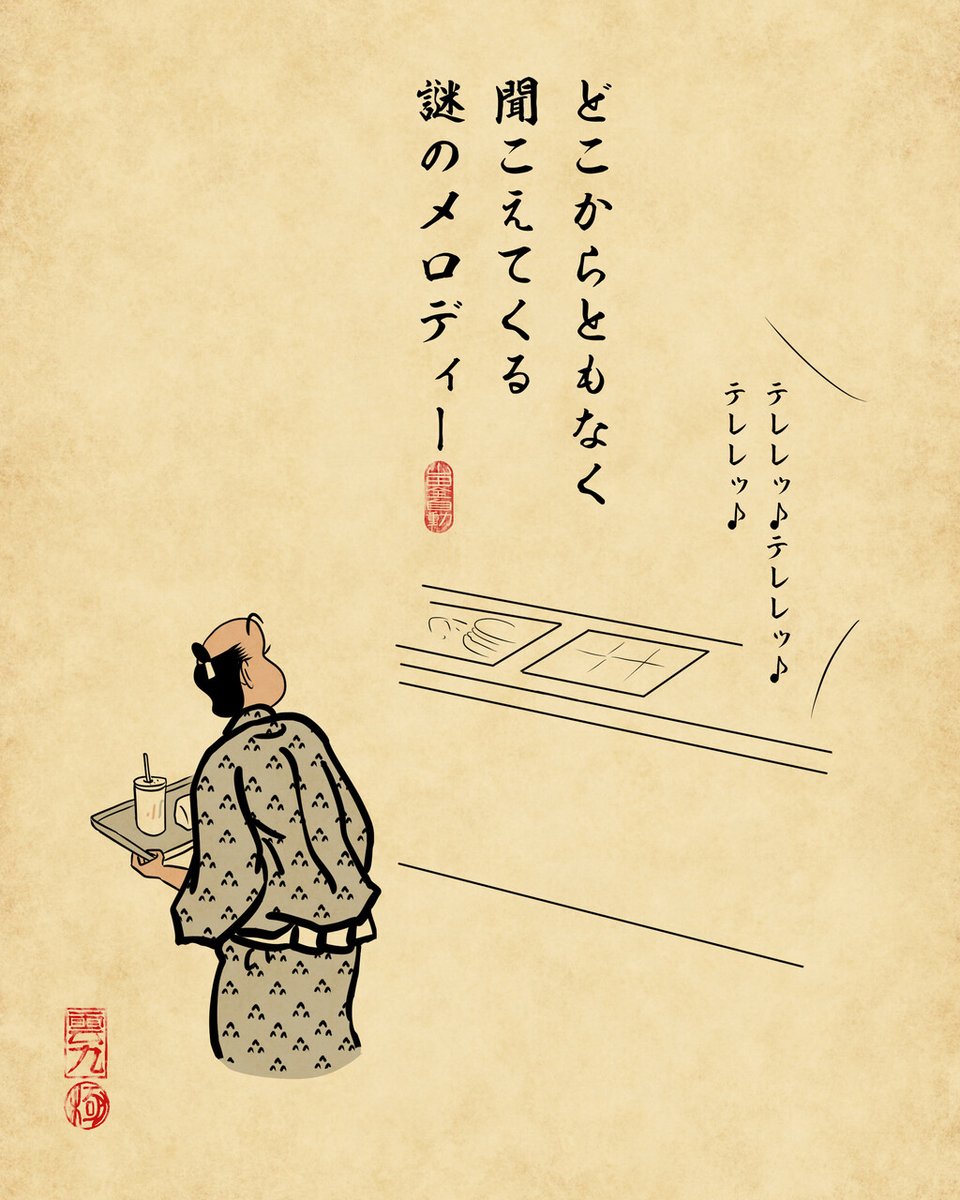 どこからともなく
聞こえてくる
謎のメロディー
テレレッ♪テレレッ♪
テレレッ♪
雲九
極